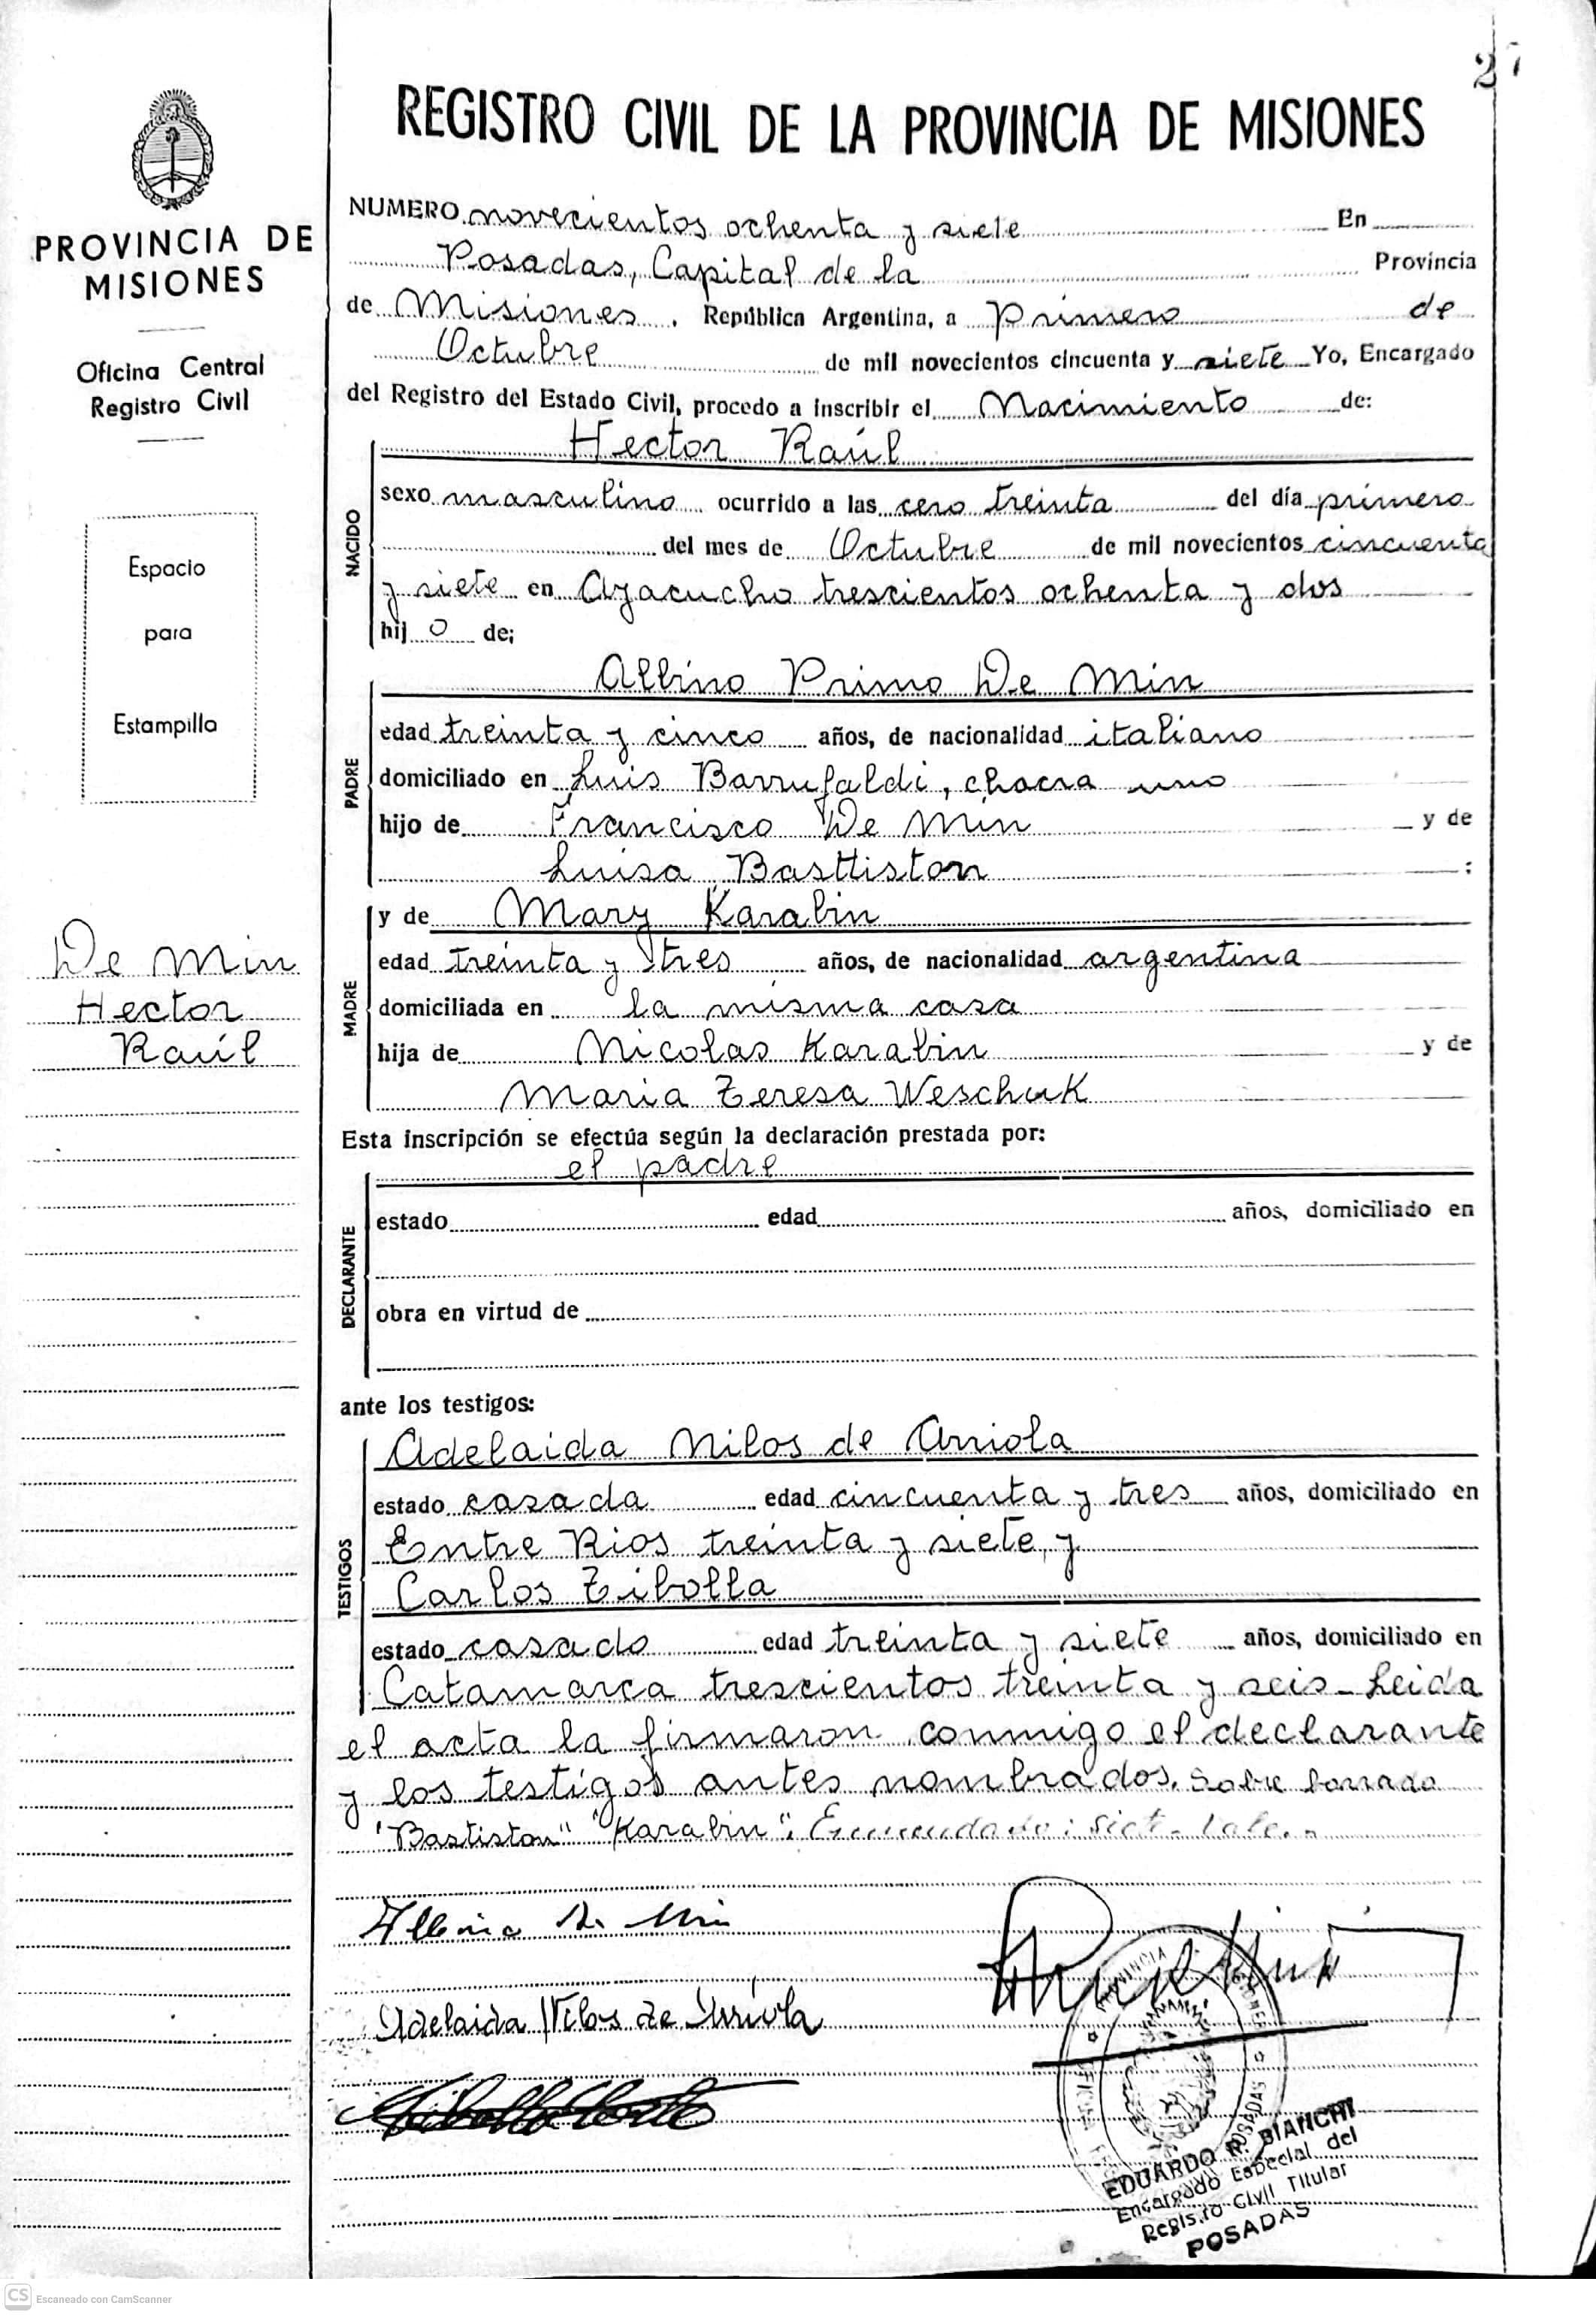 27
REGISTRO CIVIL DE LA PROVINCIA DE MISIONES
PROVINCIA DE
MISIONES
Oficina Central
Registro Civil
Espacio
para
Estampilla
De Min
Hector
Raúl
NUMERO novecientos ochenta y siete En
Posadas, Capital de la Provincia
de Misiones, República Argentina, a Primero de
Octubre de mil novecientos cincuenta y siete Yo, Encargado
del Registro del Estado Civil, procedo a inscribir el Nacimiento de:
Hector Raúl
NACIDO
sexo masculino ocurrido a las cero treinta del día primero
del mes de Octubre de mil novecientos cincuenta
y siete en Ayacucho trescientos ochenta y dos
hij o de;
Albino Primo De Min
PADRE
edad treinta y cinco años, de nacionalidad italiano
domiciliado en Luis Barrufaldi, chacra uno
hijo de Francisco De Min y de
Luisa Basttiston :
MADRE
y de Mary Karabin
edad treinta y tres años, de nacionalidad argentina
domiciliada en la misma casa
hija de Nicolas Karabin y de
Maria Teresa Weschuk
Esta inscripción se efectúa según la declaración prestada por:
el padre
DECLARANTE
estado edad años, domiciliado en
obra en virtud de
ante los testigos:
TESTIGOS
Adelaida Nilos de Arriola
estado casada edad cincuenta y tres años, domiciliado en
Entre Rios treinta y siete, y
Carlos Tibolla
estado casado edad treinta y siete años, domiciliado en
Catamarca trescientos treinta y seis - Leida
el acta la firmaron conmigo el declarante
y los testigos antes nombrados. Sobre borrado
"Bastiston" "Karabin". Enmendado: siete - Vale. -
Albino De Min
Adelaida Nilos de Arriola
Tibolla Carlo
EDUARDO R. BIANCHI
Encargado Especial del
Registro Civil Titular
POSADAS
CS Escaneado con CamScanner